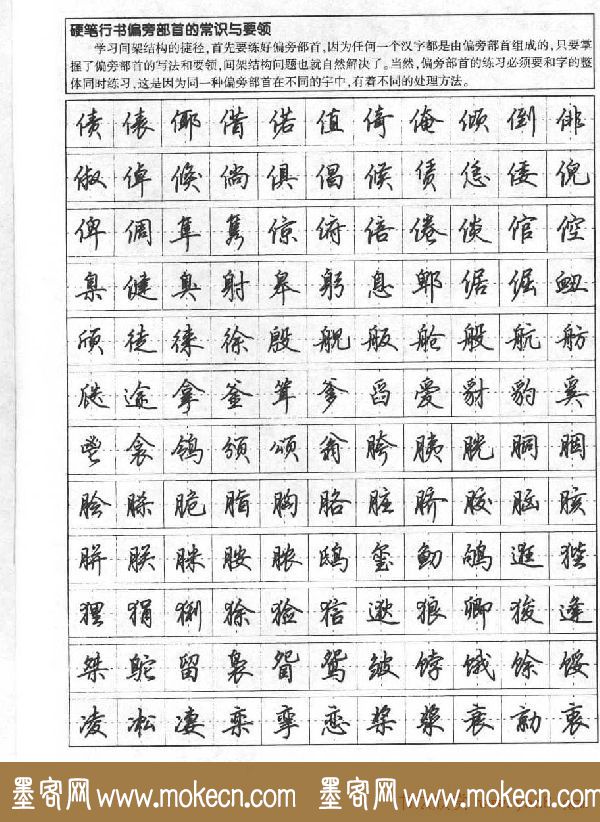 硬笔行书偏旁部首的常识与要领
学习间架结构的捷径,首先要练好偏旁部首,因为任何一个汉字都是由偏旁部首组成的,只要掌
握了偏旁部首的写法和要领,间架结构问题也就自然解决了。当然,偏旁部首的练习必须要和字的整
体同时练习,这是因为同一种偏旁部首在不同的字中,有着不同的处理方法。
债俵倻借偌值倚俺倾倒俳
俶倬倏倘俱倡候赁恁倭倪
俾倜隼隽倞俯倍倦倓倌倥
臬健臭射皋躬息郫倨倔衄
颀徒徕徐殷舰舨舱般航舫
瓞途拿釜耸爹舀爱豺豹奚
鬯衾鸰颁颂翁胯胰胱胴胭
脍脎脆脂胸胳脏脐胶脑胲
胼朕脒胺脓鸱玺鱽鸲逛狴
狸狷猁狳猃狺逖狼卿狻逢
桀鸵留袅眢鸳皱饽饿馀馁
凌凇凄栾挛恋桨浆衰勍衷
墨客网 www.mokecn.com 墨客网 www.mokecn.com